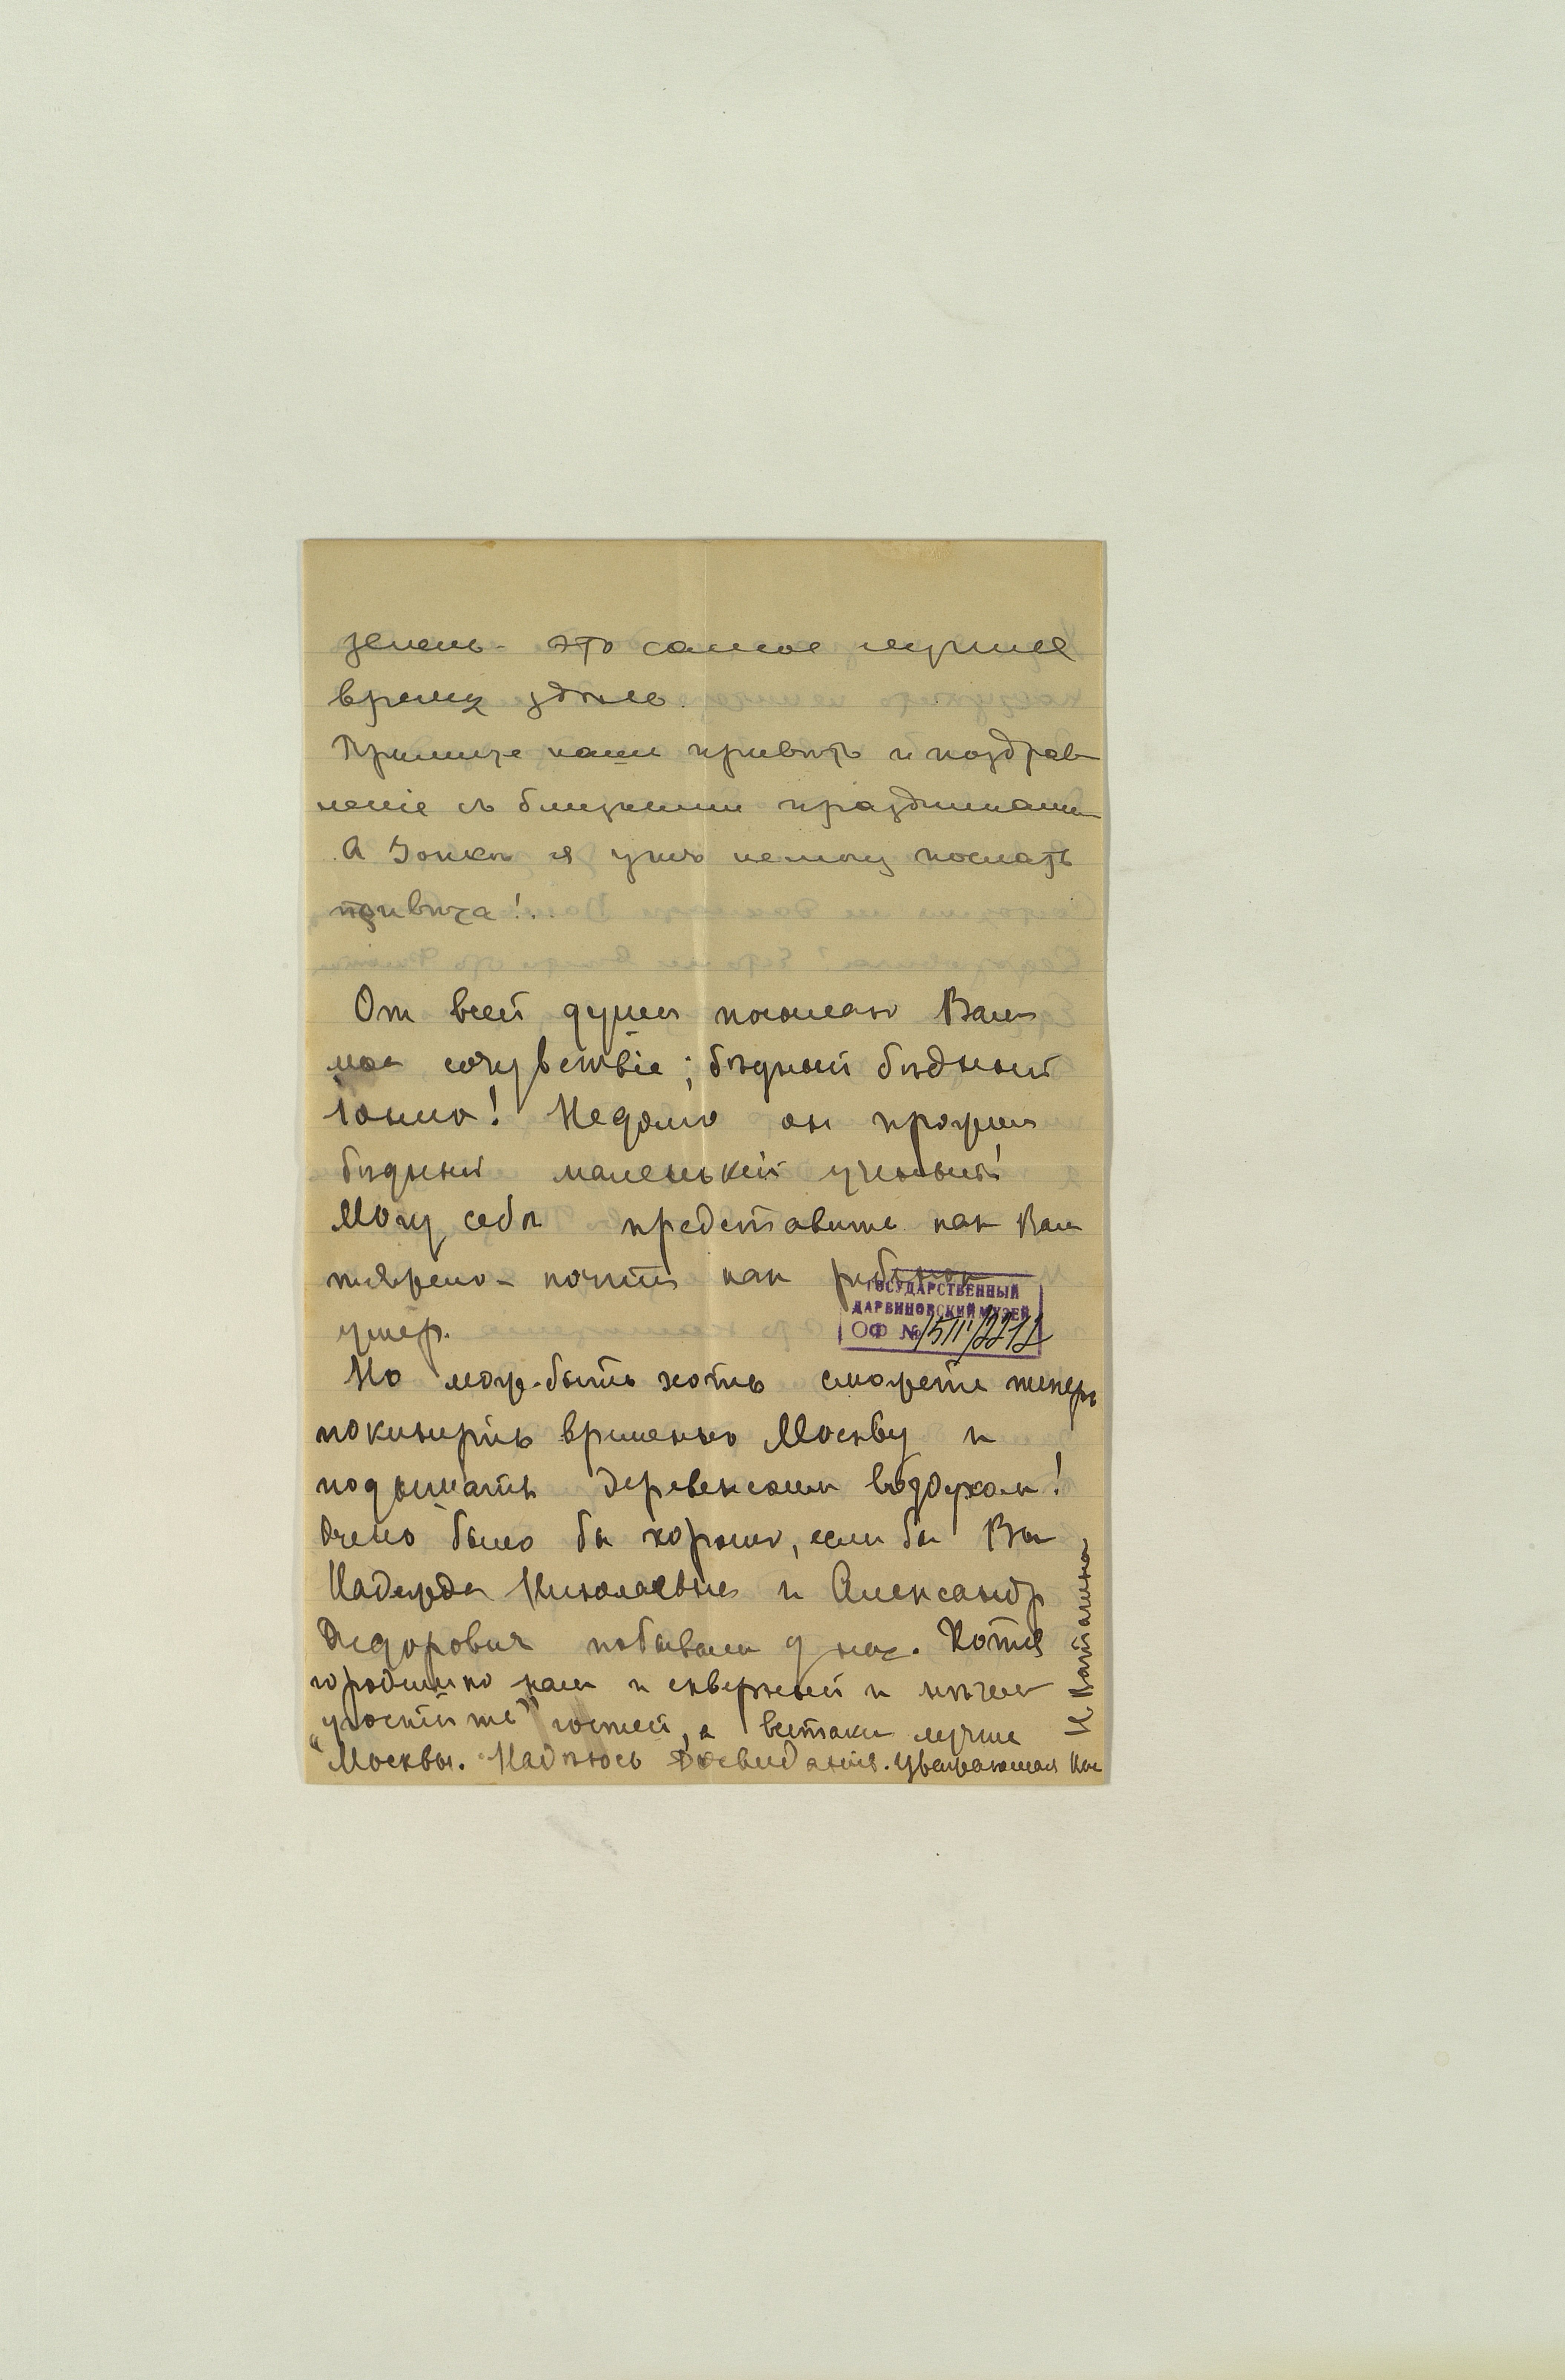 зелень - это самое лучшее
время здесь.
Примите наши привѣтъ и поздрав
ленiе съ близкими праздниками
А Іонкѣ я ужъ не могу послать
привѣта!..
От всей души посылаю Вам
мое сочувствiе; бѣдный бѣдный
Іоник! Недолго он прожил
бѣдный маленькiй ученый!
Могу себѣ представить как Вам
тяжело - почти как ребенок
умер.
ГОСУДАРСТВЕННЫЙ
ДАРВИНОВСКИЙ МУЗЕЙ
ОФ № 15111/2212
Но мож-быть хоть сможете теперь
покинуть временно Москву и
подышать деревенским воздухом!
Очень было бы хорошо, если бы Вы
Надежда Николаевна и Александр
Федорович побывали у нас. Хотя
городишко наш и скверный и нѣчем
"угостить" гостей, а всетаки лучше
Москвы. Надѣюсь досвиданiя. Уважающая Вас